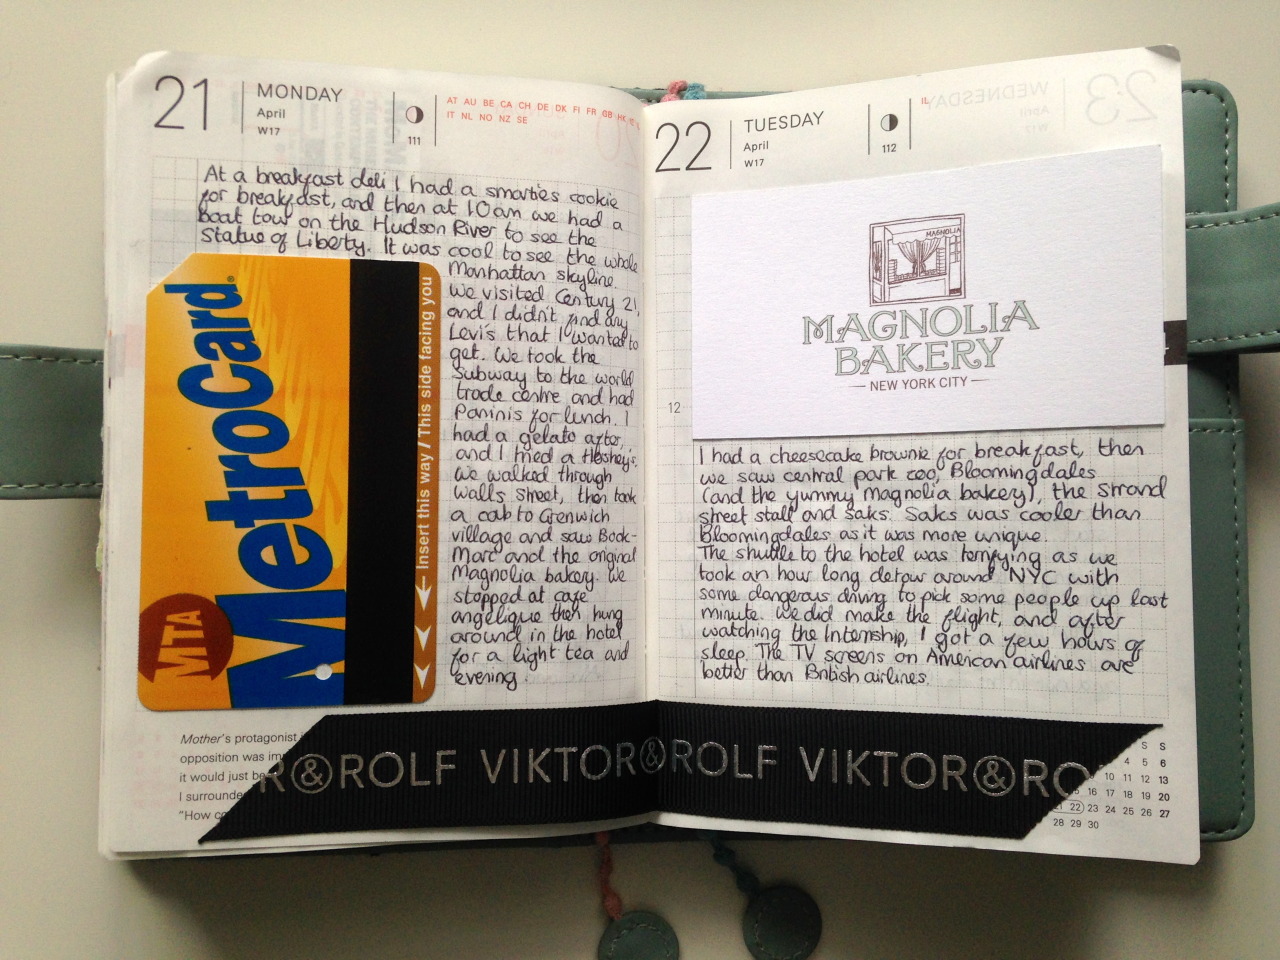 21
MONDAY
April
W17
111
AT AU BE CA CH DE DK FI FR GB HK
IT NL NO NZ SE
At a breakfast deli I had a smarties cookie
for breakfast, and then at 10am we had a
boat tour on the Hudson River to see the
Statue of Liberty. It was cool to see the whole
Manhattan skyline.
We visited Century 21,
and I didn't find any
Levi's that I wanted to
get. We took the
Subway to the world
trade centre and had
Paninis for lunch. I
had a gelato after,
and I tried a Hershey's.
We walked through
Walls Street, then took
a cab to Grenwich
village and saw Book-
Marc and the original
Magnolia bakery. We
stopped at cafe
angelique then hung
around in the hotel
for a light tea and
evening
MetroCard®
MTA
← Insert this way / This side facing you
Mother's protagonist
opposition was
it would just be
I surrounde
"How
22
TUESDAY
April
W17
112
IL
WEDNESDAY
April
W17
23
MAGNOLIA
MAGNOLIA
BAKERY
NEW YORK CITY
12
I had a cheesecake brownie for breakfast, then
we saw central park zoo, Bloomingdales
(and the yummy magnolia bakery), the strand
street stall and saks. Saks was cooler than
Bloomingdales as it was more unique.
The shuttle to the hotel was terrifying as we
took an hour long detour around NYC with
some dangerous driving to pick some people up last
minute. We did make the flight, and after
watching the Internship, I got a few hours of
sleep. The TV screens on American airlines are
better than British airlines.
R&ROLF VIKTOR&ROLF VIKTOR&RO
S S
4 5 6
10 11 12 13
16 17 18 19 20
21 22 23 24 25 26 27
28 29 30